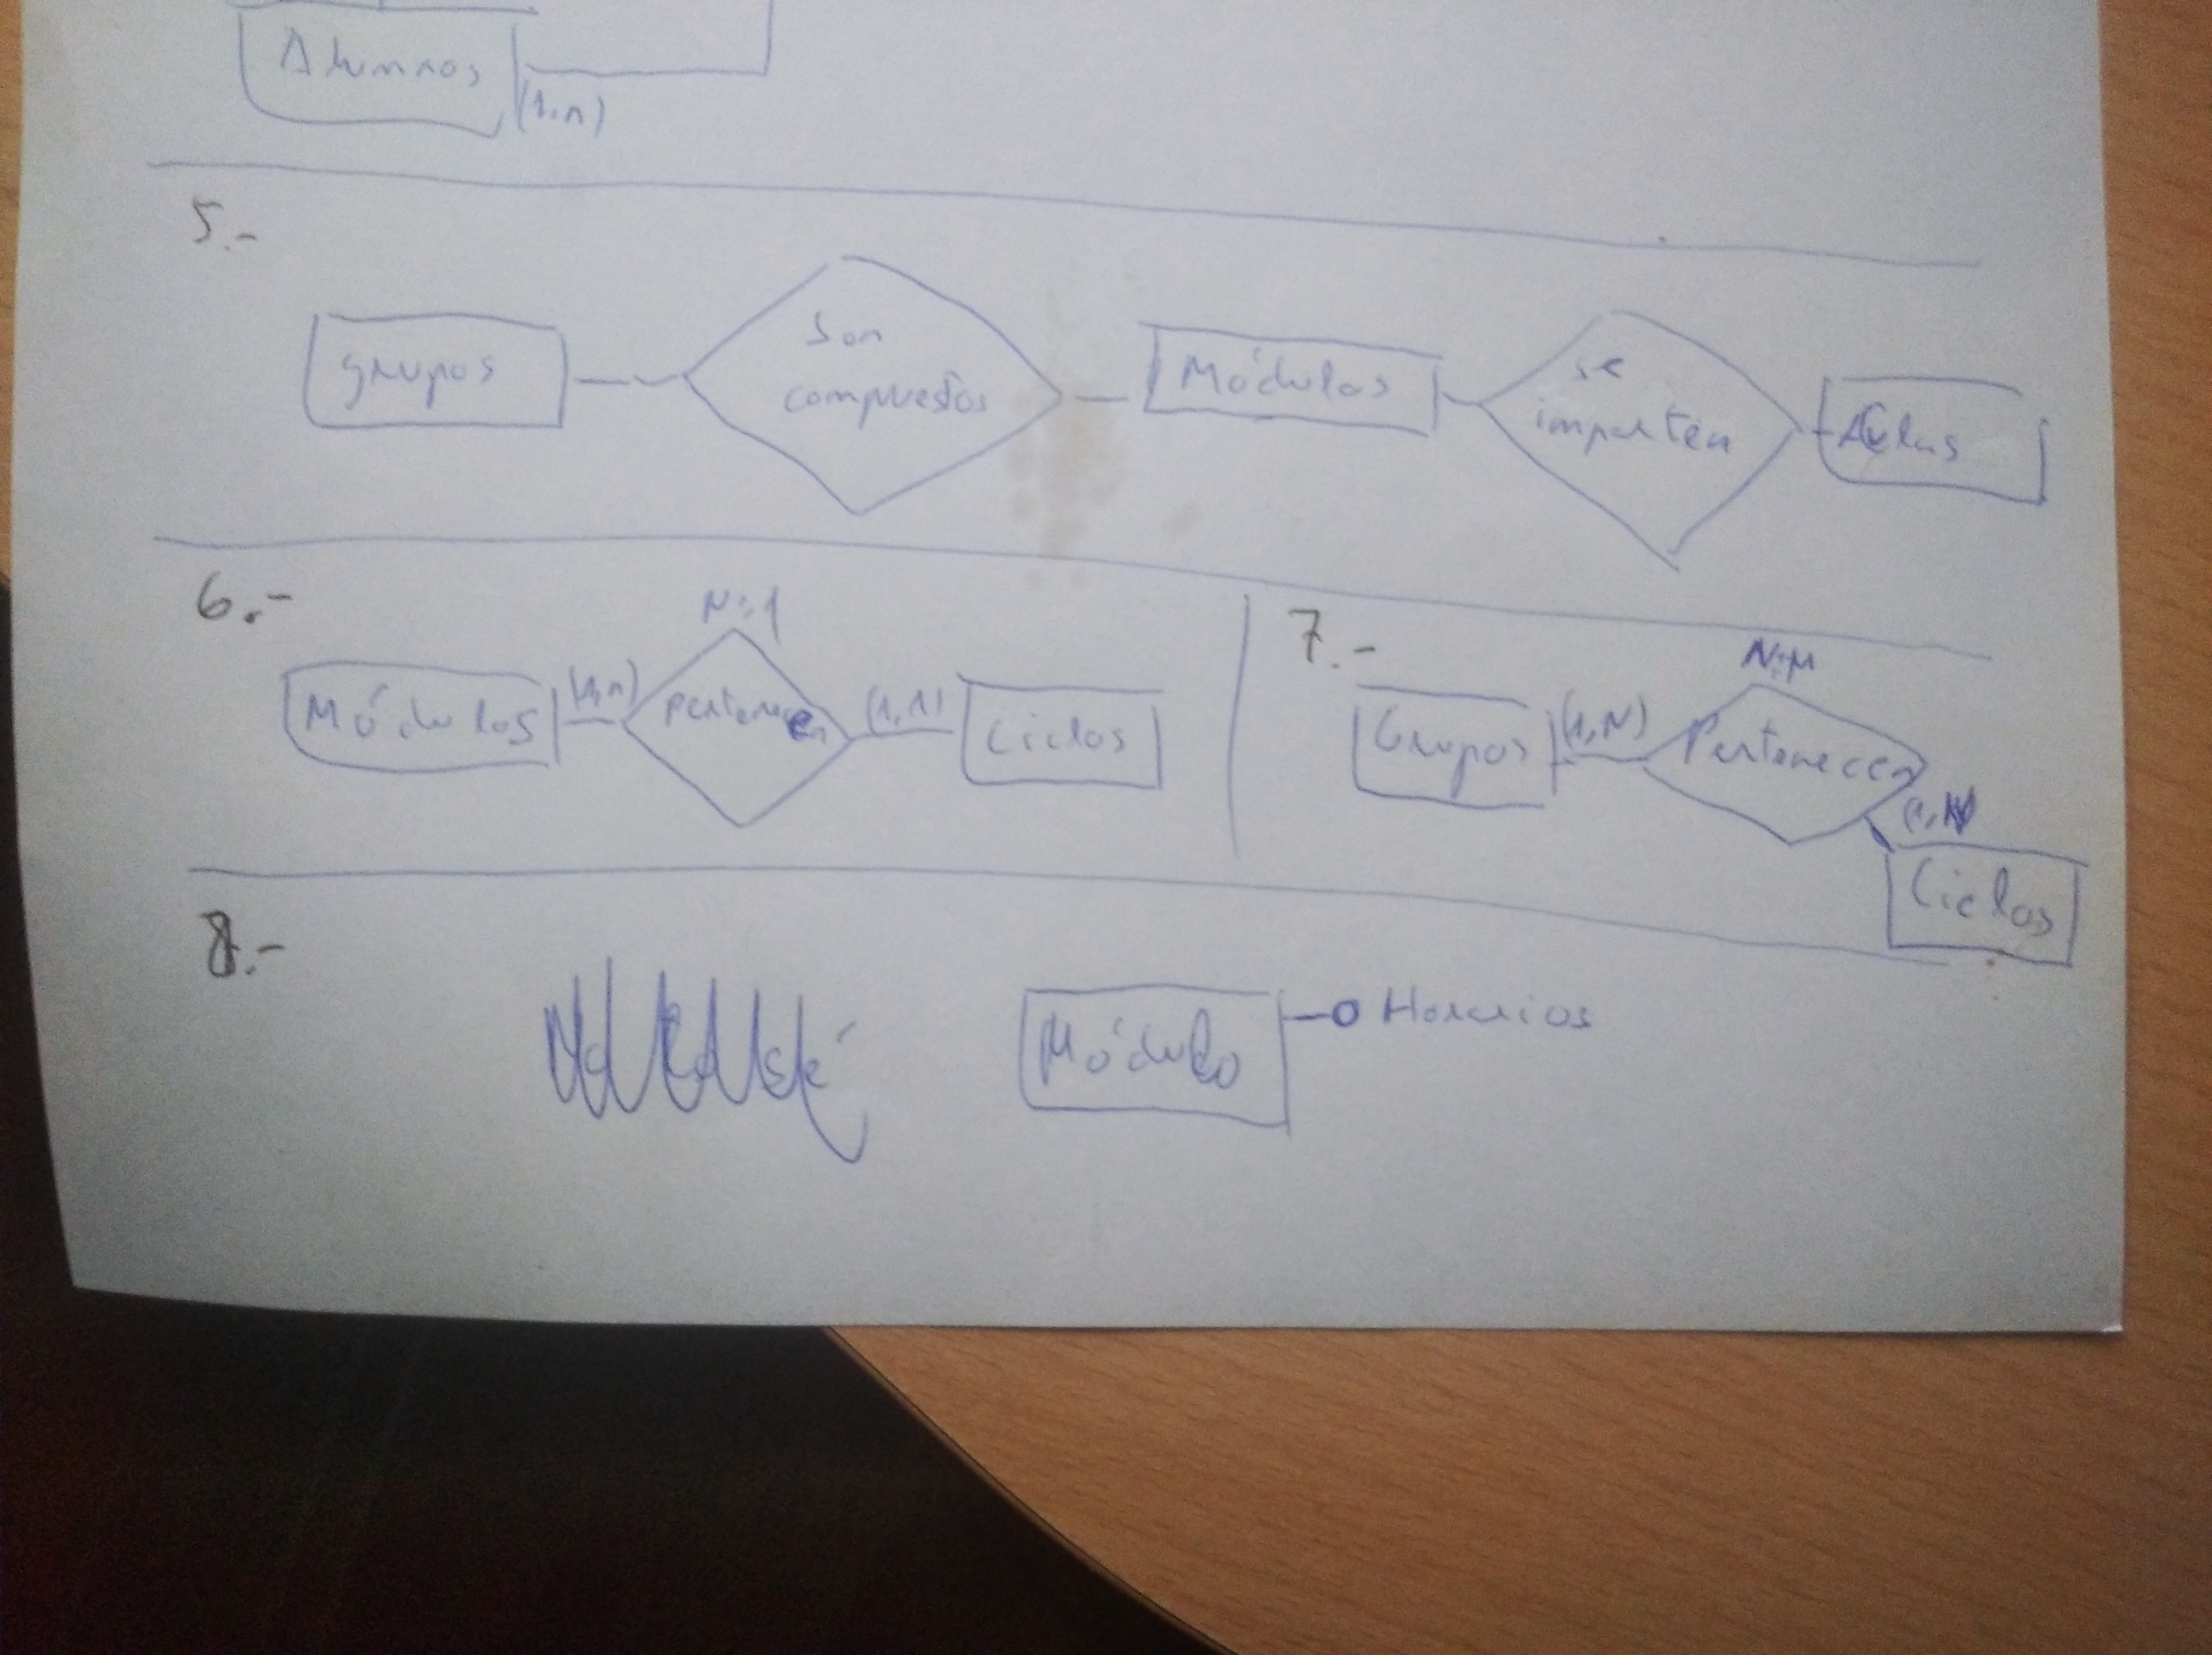 Alumnos
(1,n)
5.-
grupos
son
compuestos
Módulos
se
imparten
Aulas
6.-
N:1
Módulos
(1,n)
pertenecen
(1,1)
Ciclos
7.-
N:M
Grupos
(1,N)
Pertenecen
(1,N)
Ciclos
8.-
Módulo
Horarios